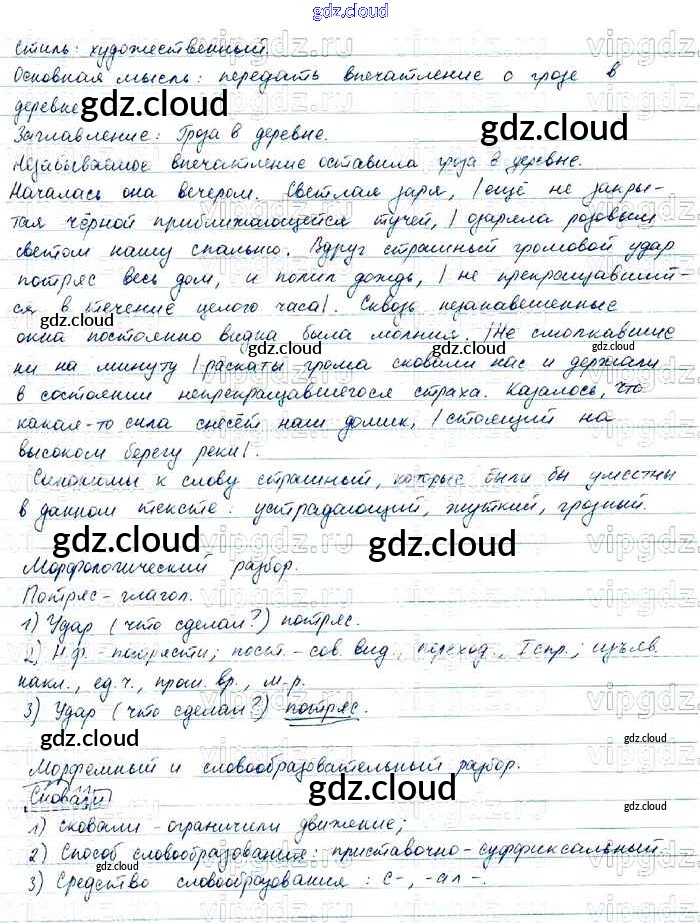 gdz.cloud
Стиль: художественный.
Основная мысль: передать впечатление о грозе в
деревне
gdz.cloud
gdz.cloud
Заглавление: Гроза в деревне.
Незабываемое впечатление оставила гроза в деревне.
Началась она вечером. Светлая заря, |ещё не закры-
тая чёрной приближающейся тучей,| озаряла розовым
светом нашу спальню. Вдруг страшный громовой удар
потряс весь дом, и полил дождь, | не прекращавший-
ся в течение целого часа|. Сквозь незанавешенные
gdz.cloud
gdz.cloud
окна постоянно видна была молния. |Не смолкавшие
gdz.cloud
gdz.cloud
ни на минуту | раскаты грома сковали нас и держали
в состоянии непрекращавшегося страха. Казалось, что
какая-то сила снесёт наш домик, | стоящий на
высоком берегу реки|.
Синонимы к слову страшный, которые были бы уместны
в данном тексте: устрашающий, жуткий, грозный.
gdz.cloud
gdz.cloud
Морфологический разбор.
Потряс - глагол.
1) Удар (что сделал?) потряс.
2) Н.ф. - потрясти; пост. - сов. вид., переход., I спр.; изъяв.
накл., ед.ч., прош. вр., м.р.
3) Удар (что сделал?) потряс.
gdz.cloud
gdz.cloud
Морфемный и словообразовательный разбор.
gdz.cloud
Сковали
gdz.cloud
gdz.cloud
1) сковали - ограничили движение;
2) Способ словообразования: приставочно-суффиксальный.
3) Средство словообразования: с-, -ал-.